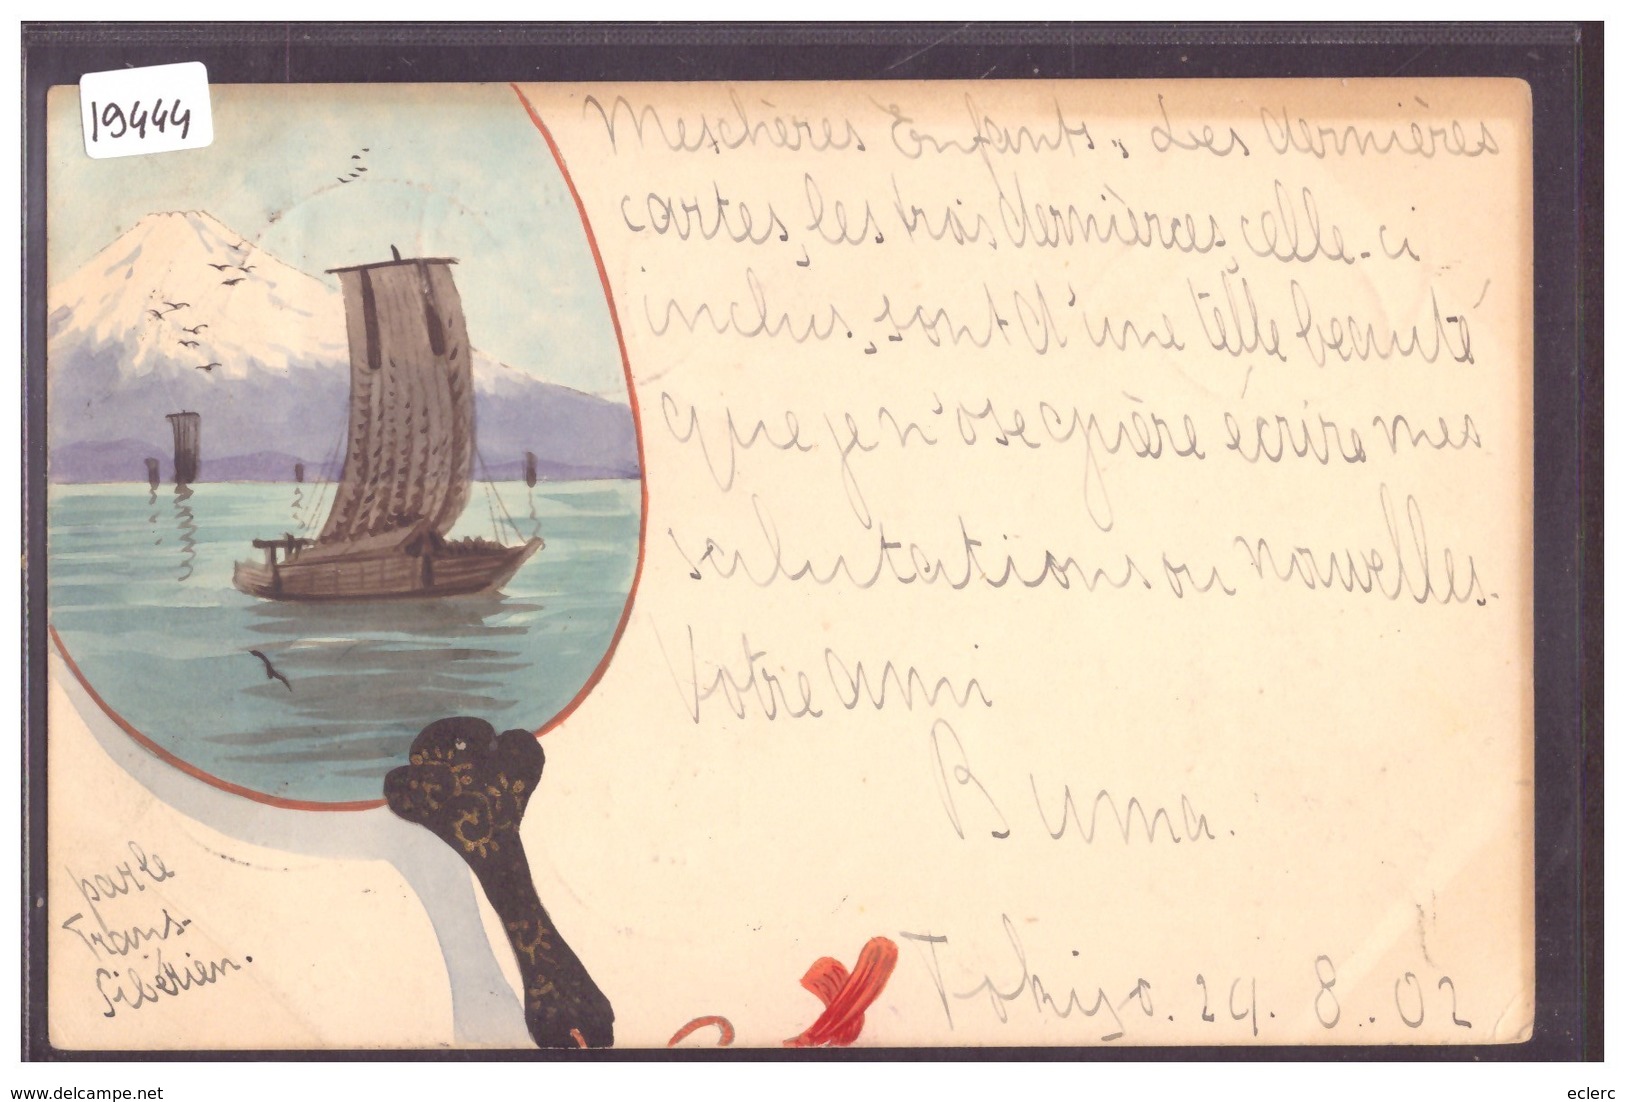 19444
Meschères Enfants. Les dernières
cartes, les trois dernières, celle-ci
inclus, sont d'une telle beauté
que je n'ose guère écrire mes
salutations ou nouvelles.
Votre ami
Buma.
Tokiyo. 29. 8. 02
par le
Trans-
Sibérien.
www.delcampe.net
eclerc